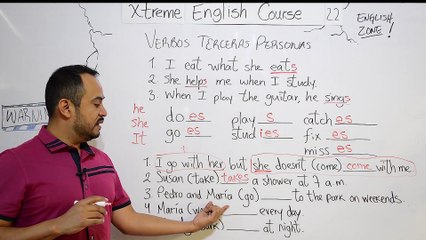 Xtreme English Course 22
ENGLISH ZONE!
VERBOS TERCERAS PERSONAS
1. I eat what she eats
2. She helps me when I study.
3. When I play the guitar, he sings
he
she
It
do es play s catch es
go es studies fix es
miss es
WARNI
1. I go with her, but she doesn't (come) come with me
2. Susan (take) takes a shower at 7 a.m.
3. Pedro and María (go) to the park on weekends.
4 María every day.
at night.